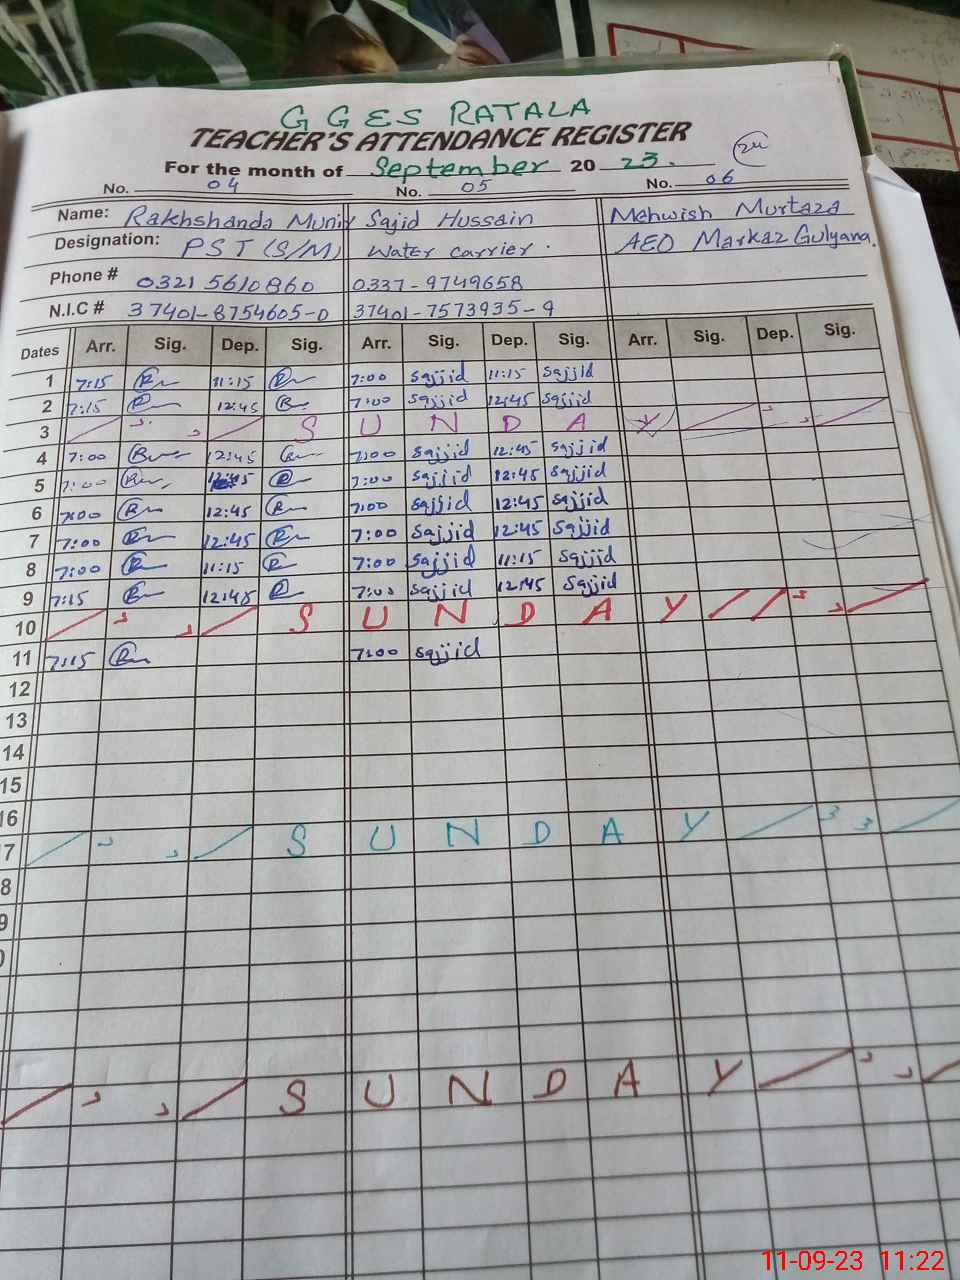 G G E S RATALA
TEACHER'S ATTENDANCE REGISTER
For the month of September 20 23.
No. 04 No. 05 No. 06
Name: Rakhshanda Munir Sajid Hussain Mehwish Murtaza
Designation: PST (S/M) Water carrier. AEO Markaz Gulyana.
Phone # 0321 5610860 0337-9749658
N.I.C # 37401-8754605-0 37401-7573935-9
Dates Arr. Sig. Dep. Sig. Arr. Sig. Dep. Sig. Arr. Sig. Dep. Sig.
1 7:15 11:15 7:00 sajjid 11:15 sajjid
2 7:15 12:45 7:00 sajjid 12:45 sajjid
3 S U N D A Y
4 7:00 12:45 7:00 sajjid 12:45 sajjid
5 7:00 12:45 7:00 sajjid 12:45 sajjid
6 7:00 12:45 7:00 sajjid 12:45 sajjid
7 7:00 12:45 7:00 sajjid 12:45 sajjid
8 7:00 11:15 7:00 sajjid 11:15 sajjid
9 7:15 12:45 7:00 sajjid 12:45 sajjid
10 S U N D A Y
11 7:15 7:00 sajjid
12
13
14
15
16
7 S U N D A Y
8
9
0
S U N D A Y
11-09-23 11:22